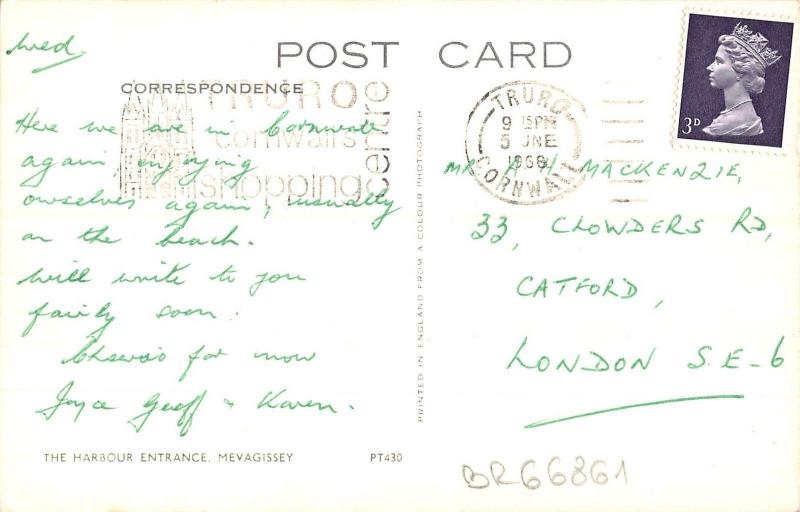 POST CARD
Wed.
CORRESPONDENCE
TRURO
cornwall's
shopping
centre
Here we are in Cornwall
again, enjoying
ourselves again, usually
on the beach.
Will write to you
fairly soon.
Cheerio for now
Joyce Geoff & Karen.
THE HARBOUR ENTRANCE, MEVAGISSEY
PT430
PRINTED IN ENGLAND FROM A COLOUR PHOTOGRAPH
TRURO
9 15PM
5 JUNE
1968
CORNWALL
3D
MR A H MACKENZIE,
33, CLOWDERS RD,
CATFORD,
LONDON S.E-6
BR66861